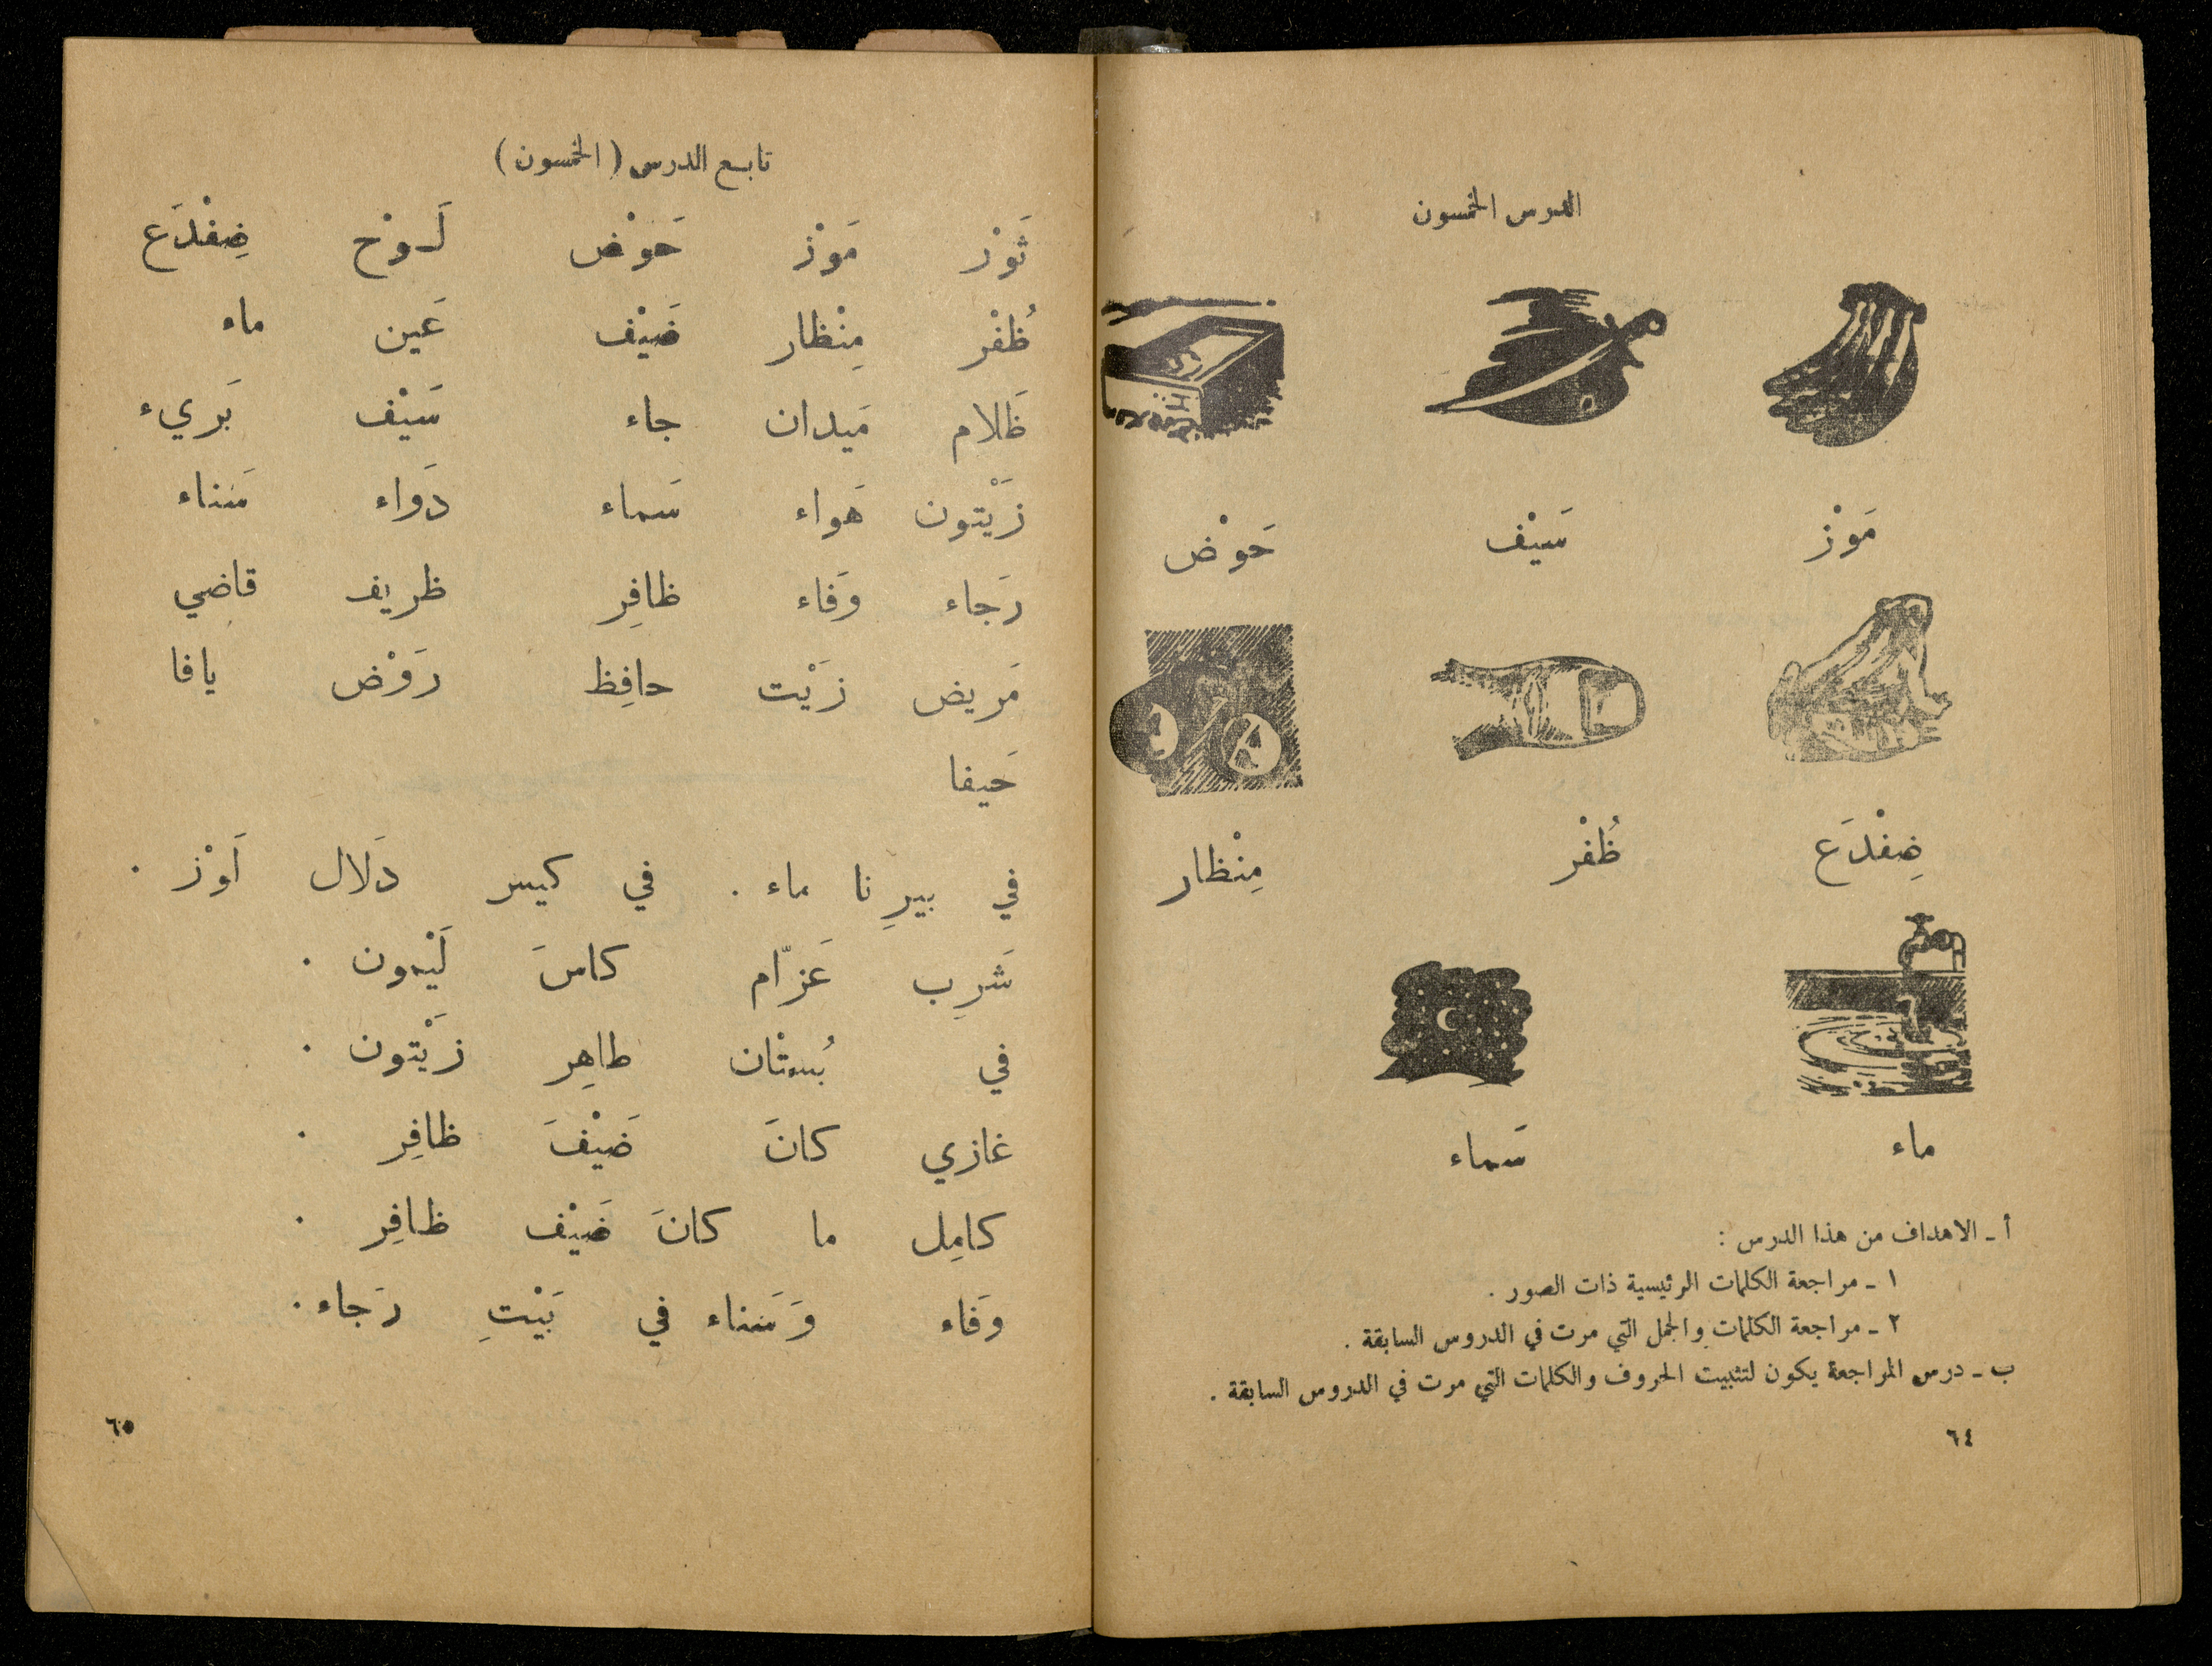 الدرس الخمسون
مَوْز سَيْف حَوْض
ضِفْدَع ظُفْر مِنْظار
ماء سَماء
أ ـ الاهداف من هذا الدرس :
١ ـ مراجعة الكلمات الرئيسية ذات الصور .
٢ ـ مراجعة الكلمات والجمل التي مرت في الدروس السابقة .
ب ـ درس المراجعة يكون لتثبيت الحروف والكلمات التي مرت في الدروس السابقة .
٦٤
تابع الدرس (الخمسون)
ثَوْر مَوْز حَوْض لَـوْح ضِفْدَع
ظُفْر مِنْظار ضَيْف عَين ماء
ظَلام مَيدان جاء سَيْف بَريء
زَيْتون هَواء سَماء دَواء سَناء
رَجاء وَفاء ظافِر ظريف قاضي
مَريض زَيْت حافِظ رَوْض يافا
حَيفا
في بيرِنا ماء . في كيس دَلال لَوْز .
شَرِب عَزّام كاسَ لَيْمون .
في بُستْان طاهِر زَيْتون .
غازي كانَ ضَيْفَ ظافِر .
كامِل ما كانَ ضَيْف ظافِر .
وَفاء وَسَناء في بَيْتِ رَجاء .
٦٥